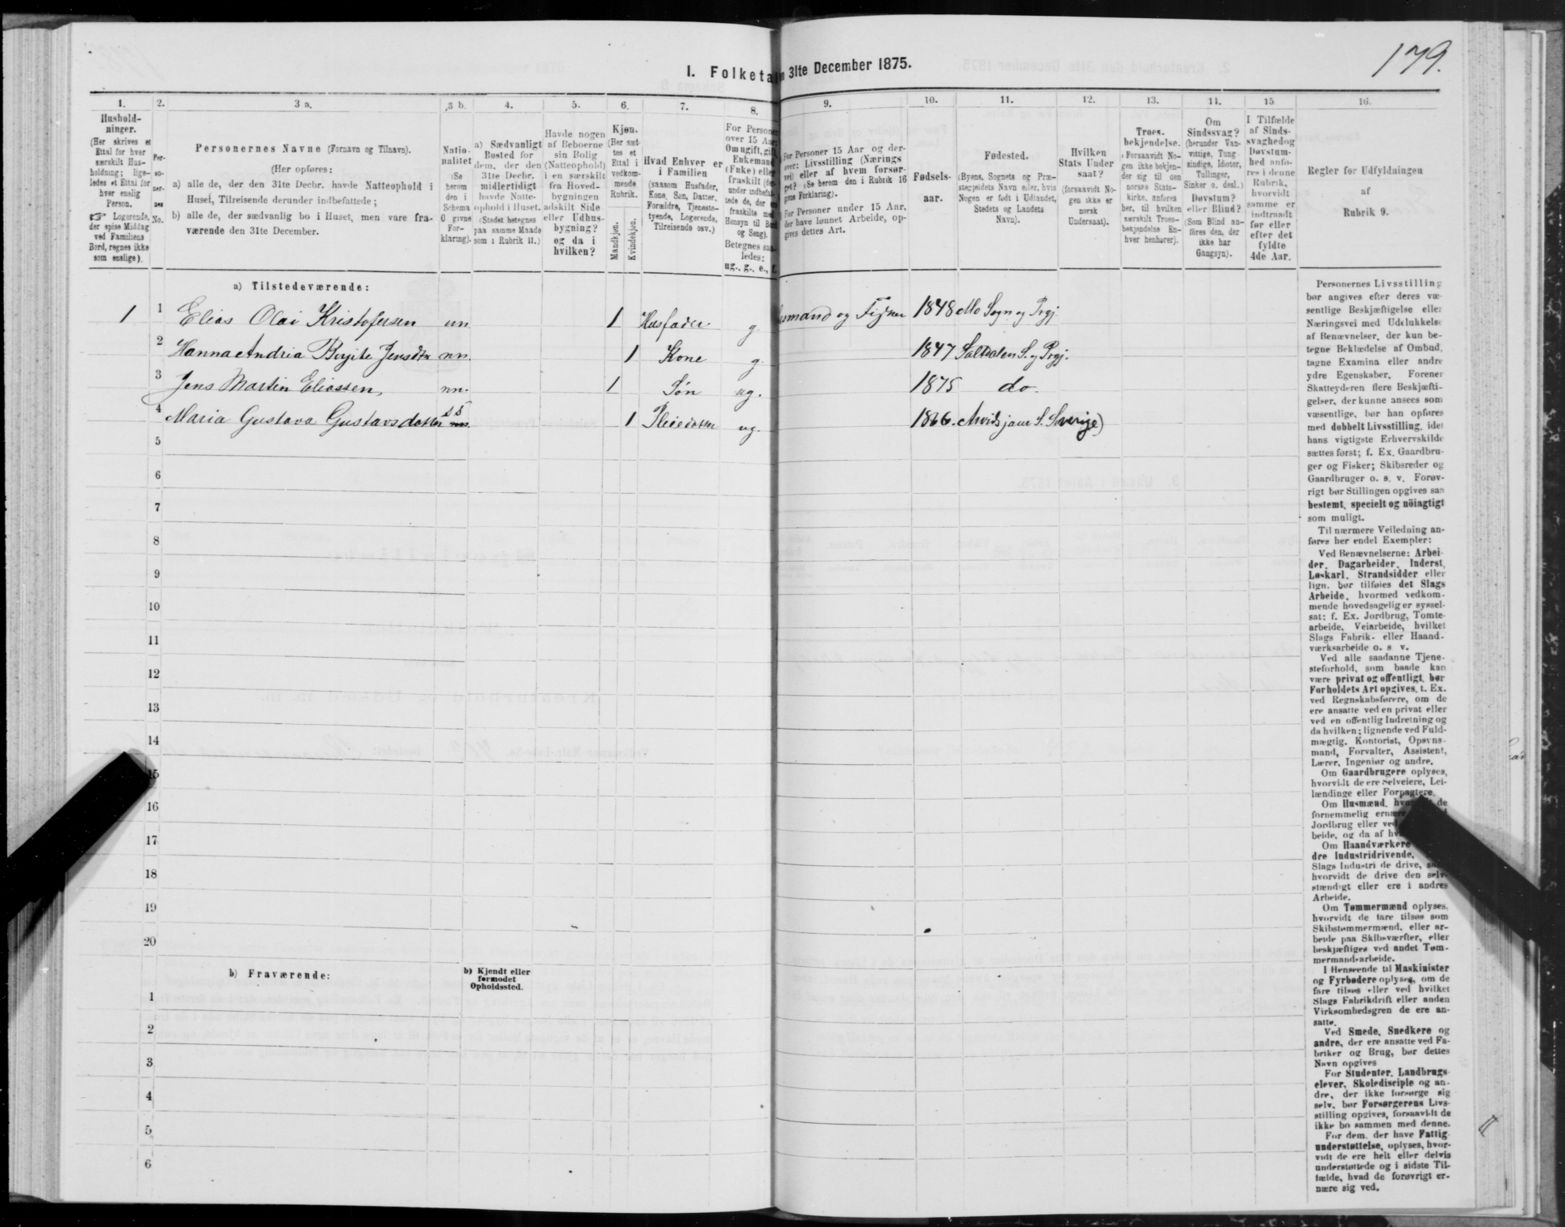 179.
I. Folketa
n 31te December 1875.
1.
2.
3 a.
3 b.
4.
5.
6.
7.
8.
9.
10.
11.
12.
13.
14.
15
16.
Hushold-
ninger.
(Her skrives et
Ettal for hver
særskilt Hus-
holdning; lige-
ledes et Ettal for
hver enslig
Person.
☞ Logerende,
der spise Middag
ved Familiens
Bord, regnes ikke
som enslige).
Per-
so-
nes
No.
Personernes Navne (Fornavn og Tilnavn).
(Her opføres:
a) alle de, der den 31te Decbr. havde Natteophold i
Huset, Tilreisende derunder indbefattede;
b) alle de, der sædvanlig bo i Huset, men vare fra-
værende den 31te December.
Natio-
nalitet
(Se
herom
den i
Schema
0 givne
For-
klaring).
a) Sædvanligt
Bosted for
dem, der den
31te Decbr.
midlertidigt
havde Natte-
ophold i Huset.
(Stedet betegnes
paa samme Maade
som i Rubrik 11.)
Havde nogen
af Beboerne
sin Bolig
(Natteophold)
i en særskilt
fra Hoved-
bygningen
adskilt Side
eller Udhus-
bygning?
og da i
hvilken?
Kjøn.
(Her sæt-
tes et
Ettal i
vedkom-
mende
Rubrik.
Mandkjøn.
Kvindekjøn.
Hvad Enhver er
i Familien
(saasom Husfader,
Kone, Søn, Datter,
Forældre, Tjeneste-
tyende, Logerende,
Tilreisende osv.)
For Persone
over 15 Aa
Om ugift, gif
Enkemand
(Enke) elle
fraskilt (de
under indbefat-
tede de, der e
fraskilte me
Hensyn til Bo
og Seng).
Betegnes saa
ledes:
ug., g., e., f.
For Personer 15 Aar og der-
over: Livsstilling (Nærings
vei) eller af hvem forsør-
get? (Se herom den i Rubrik 16
givne Forklaring).
For Personer under 15 Aar,
der have lønnet Arbeide, op-
gives dettes Art.
Fødsels-
aar.
Fødested.
(Byens, Sognets og Præ-
stegjeldets Navn eller, hvis
Nogen er født i Udlandet,
Stedets og Landets
Navn).
Hvilken
Stats Under
saat?
(forsaavidt No-
gen ikke er
norsk
Undersaat).
Troes-
bekjendelse.
(Forsaavidt No-
gen ikke bekjen-
der sig til den
norske Stats-
kirke, anføres
her, til hvilken
særskilt Troes-
bekjendelse En-
hver henhører).
Om
Sindssvag?
(herunder Van-
vittige, Tung-
sindige, Idioter,
Tullinger,
Sinker o. desl.)
Døvstum?
eller Blind?
Som Blind an-
føres den, der
ikke har
Gangsyn).
I Tilfælde
af Sinds-
svaghedog
Døvstum-
hed anfø-
res i denne
Rubrik,
hvorvidt
samme er
indtraadt
før eller
efter det
fyldte
4de Aar.
Regler for Udfyldningen
af
Rubrik 9.
a) Tilstedeværende:
1 1 Elias Olai Kristofersen nn 1 Husfader g. smand og Fisker 1848 Mo Sogn og Prgj.
2 Hanna Andria Birgite Jensdtr nn. 1 Kone g. 1847 Saltdalen S. og Prgj.
3 Jens Martin Eliassen, nn. 1 Søn ug. 1875 do.
4 Maria Gustava Gustavsdatter ss nn. 1 Pleiedatter ug. 1866. Arvidsjaur S. Sverige)
5
6
7
8
9
10
11
12
13
14
15
16
17
18
19
20
b) Fraværende:
b) Kjendt eller
formodet
Opholdssted.
1
2
3
4
5
6
Personernes Livsstilling
bør angives efter deres væ-
sentlige Beskjæftigelse eller
Næringsvei med Udelukkelse
af Benævnelser, der kun be-
tegne Beklædelse af Ombud,
tagne Examina eller andre
ydre Egenskaber. Forener
Skatteyderen flere Beskjæfti-
gelser, der kunne ansees som
væsentlige, bør han opføres
med dobbelt Livsstilling, idet
hans vigtigste Erhvervskilde
sættes først; f. Ex. Gaardbru-
ger og Fisker; Skibsreder og
Gaardbruger o. s. v. Forøv-
rigt bør Stillingen opgives saa
bestemt, specielt og nöiagtigt
som muligt.
Til nærmere Veiledning an-
føres her endel Exempler:
Ved Benævnelserne: Arbei-
der, Dagarbeider, Inderst,
Løskarl, Strandsidder eller
lign. bør tilføies det Slags
Arbeide, hvormed vedkom-
mende hovedsagelig er syssel-
sat; f. Ex. Jordbrug, Tomte-
arbeide, Veiarbeide, hvilket
Slags Fabrik- eller Haand-
værksarbeide o. s v.
Ved alle saadanne Tjene-
steforhold, som baade kan
være privat og offentligt, bør
Forholdets Art opgives, t. Ex.
ved Regnskabsførere, om de
ere ansatte ved en privat eller
ved en offentlig Indretning og
da hvilken; lignende ved Fuld-
mægtig, Kontorist, Opsyns-
mand, Forvalter, Assistent,
Lærer, Ingeniør og andre.
Om Gaardbrugere oplyses,
hvorvidt de ere Selveiere, Lei-
lændinge eller Forpagtere.
Om Husmænd, de
fornemmelig ernære
Jordbrug eller ved
beide, og da af
Om Haandværkere
dre Industridrivende,
Slags Industri de drive,
hvorvidt de drive den selv-
stændigt eller ere i andres
Arbeide.
Om Tømmermænd oplyses,
hvorvidt de fare tilsøs som
Skibstømmermænd, eller ar-
beide paa Skibsværfter, eller
beskjæftiges ved andet Tøm-
mermandsarbeide.
I Henseende til Maskinister
og Fyrbødere oplyses, om de
fare tilsøs eller ved hvilket
Slags Fabrikdrift eller anden
Virksomhedsgren de ere an-
satte.
Ved Smede, Snedkere og
andre, der ere ansatte ved Fa-
briker og Brug, bør dettes
Navn opgives
For Studenter, Landbrugs-
elever, Skoledisciple og an-
dre, der ikke forsørge sig
selv, bør Forsørgerens Livs-
stilling opgives, forsaavidt de
ikke bo sammen med denne.
For dem, der have Fattig-
understøttelse, oplyses, hvor-
vidt de ere helt eller delvis
understøttede og i sidste Til-
fælde, hvad de forøvrigt er-
nære sig ved.